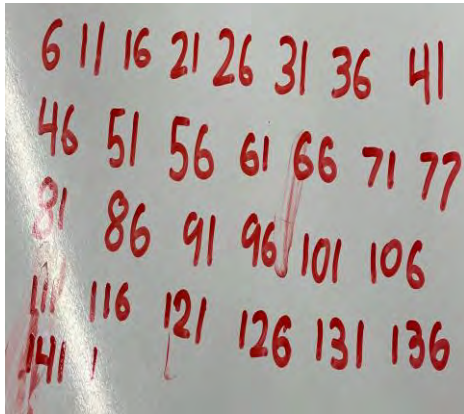 6 11 16 21 26 31 36 41
46 51 56 61 66 71 77
81 86 91 96 101 106
111 116 121 126 131 136
141